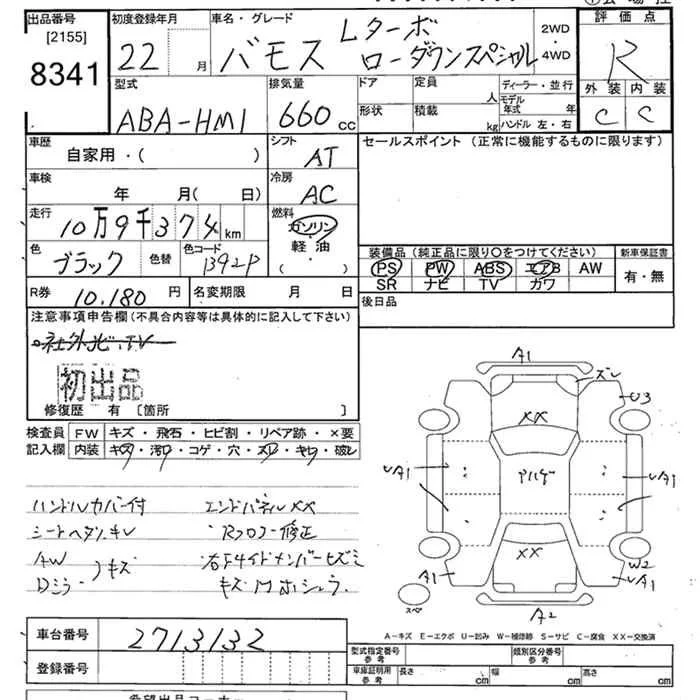 出品番号
[2155]
8341
初度登録年月
22 月
車名・グレード
バモス Lターボ
ローダウンスペシャル
2WD
4WD
評価点
R
外装 内装
C C
型式
ABA-HM1
排気量
660 cc
ドア
形状
定員 人
積載 kg
ディーラー・並行
モデル年式 年
ハンドル 左・右
車歴
自家用・( )
シフト
AT
セールスポイント (正常に機能するものに限ります)
車検
年 月( 日)
冷房
AC
走行
10万9千374 km
燃料
ガソリン
軽・油
・( )
色
ブラック
色替
色コード
B92P
装備品 (純正品に限り〇をつけてください)
PS PW ABS エアB AW
SR ナビ TV カワ
新車保証書
有・無
R券
10,180 円
名変期限 月 日
後日品
注意事項申告欄 (不具合内容等は具体的に記入して下さい)
社外ナビ・TV
初出品
修復歴 有 [箇所 ]
検査員 FW キズ・飛石・ヒビ割・リペア跡・×要
記入欄 内装 キズ・汚れ・コゲ・穴・スレ・キレ・破レ
ハンドルカバー付
シートヘタリ、キレ
AW
Dミラ
キズ
エンドパネルXX
Rフロアー修正
右Fサイドメンバーヒズミ
キズ凹ホシュウ
A1
ズレ
U3
XX
A1
アルゲ
A1
XX
W2
A1
A1
A2
スペ
A-キズ E-エクボ U-凹み W-補修跡 S-サビ C-腐食 XX-交換済
車台番号
2713132
登録番号
型式指定番号
参考
類別区分番号
参考
車庫証明用
参考
長さ cm
幅 cm
高さ cm